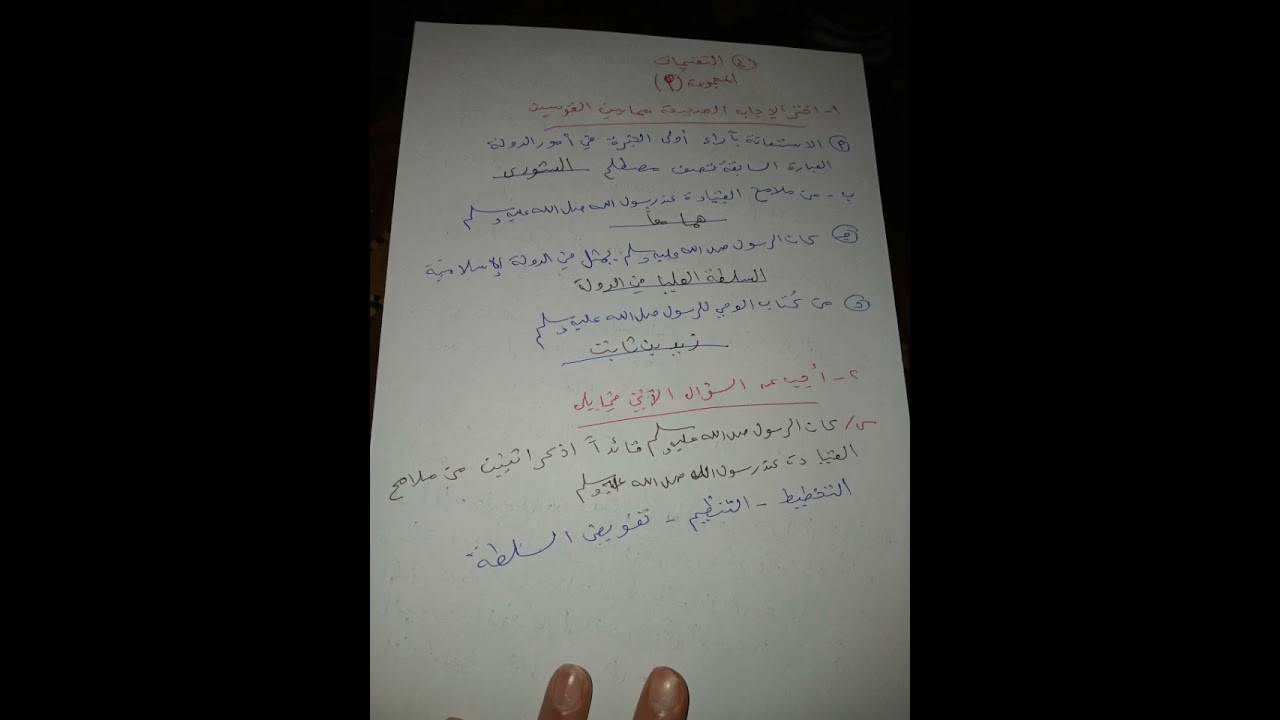 التقييمات
المجموعة (٩)
١- اختر الإجابة الصحيحة مما بين القوسين
الاستعانة بآراء أولى الخبرة في أمور الدولة
العبارة السابقة تصف مصطلح الشورى
ب - من ملامح القيادة عند رسول الله صلى الله عليه وسلم
هما معاً
كان الرسول صلى الله عليه وسلم يمثل في الدولة الإسلامية
السلطة العليا في الدولة
من كُتاب الوحي للرسول صلى الله عليه وسلم
زيد بن ثابت
٢- أجيب عن السؤال الآتي
س/ كان الرسول صلى الله عليه وسلم قائداً اذكر اثنين من ملامح
القيادة عند رسول الله صلى الله عليه وسلم
التخطيط - التنظيم - تفويض السلطة